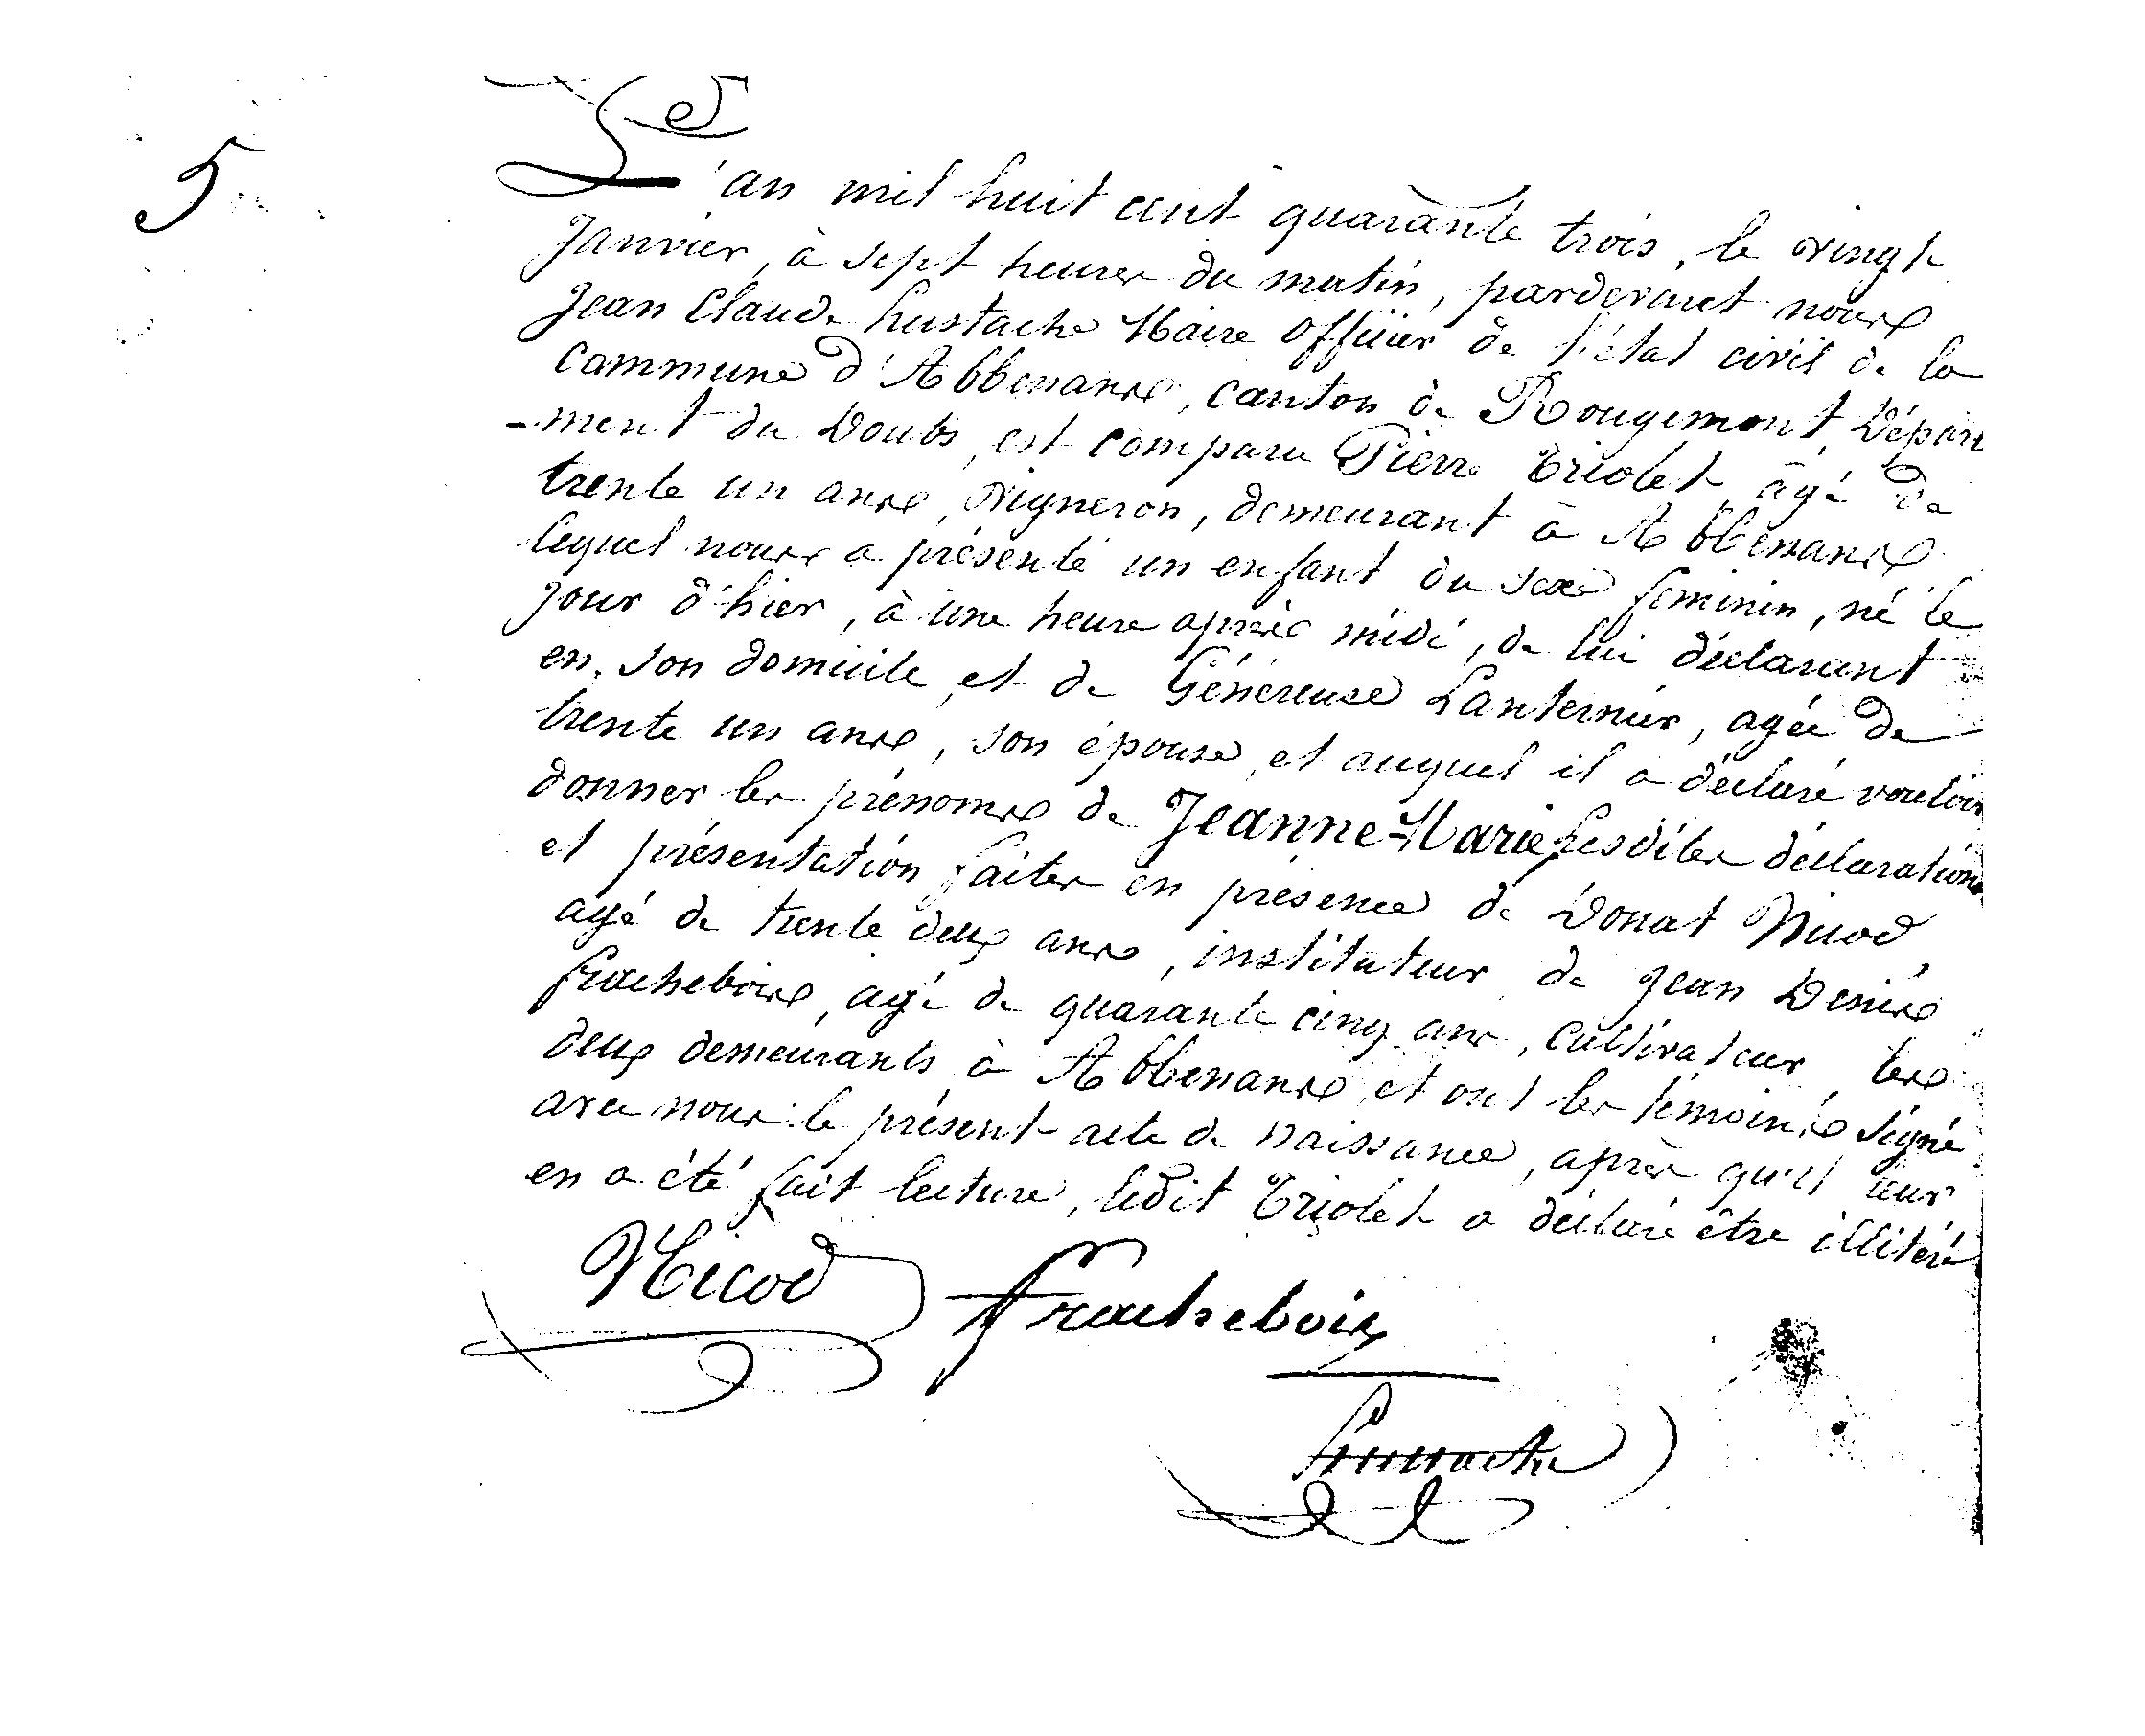 5
L'an mil huit cent quarante trois, le vingt
Janvier, à sept heures du matin, pardevant nous
Jean Claude Eustache Maire officier de l'état civil de la
commune d'Abbenans, canton de Rougemont, Départe
-ment du Doubs, est comparu Pierre Triolet, âgé de
trente un ans, Vigneron, demeurant à Abbenans
lequel nous a présenté un enfant du sexe féminin, né le
jour d'hier, à une heure après midi, de lui déclarant
en son domicile, et de Généreuse Lanternier, agée de
trente un ans, son épouse, et auquel il a déclaré vouloir
donner les prénoms de Jeanne-Marie, lesdites déclarations
et présentation faites en présence de Donat Nicod,
agé de trente deux ans, instituteur, de Jean Denis
frachebois, agé de quarante cinq ans, cultivateur, les
deux demeurants à Abbenans, et ont les témoins signé
avec nous le présent acte de naissance, après qu'il leur
en a été fait lecture, ledit Triolet a déclaré être illitéré
Nicod
frachebois
Eustache